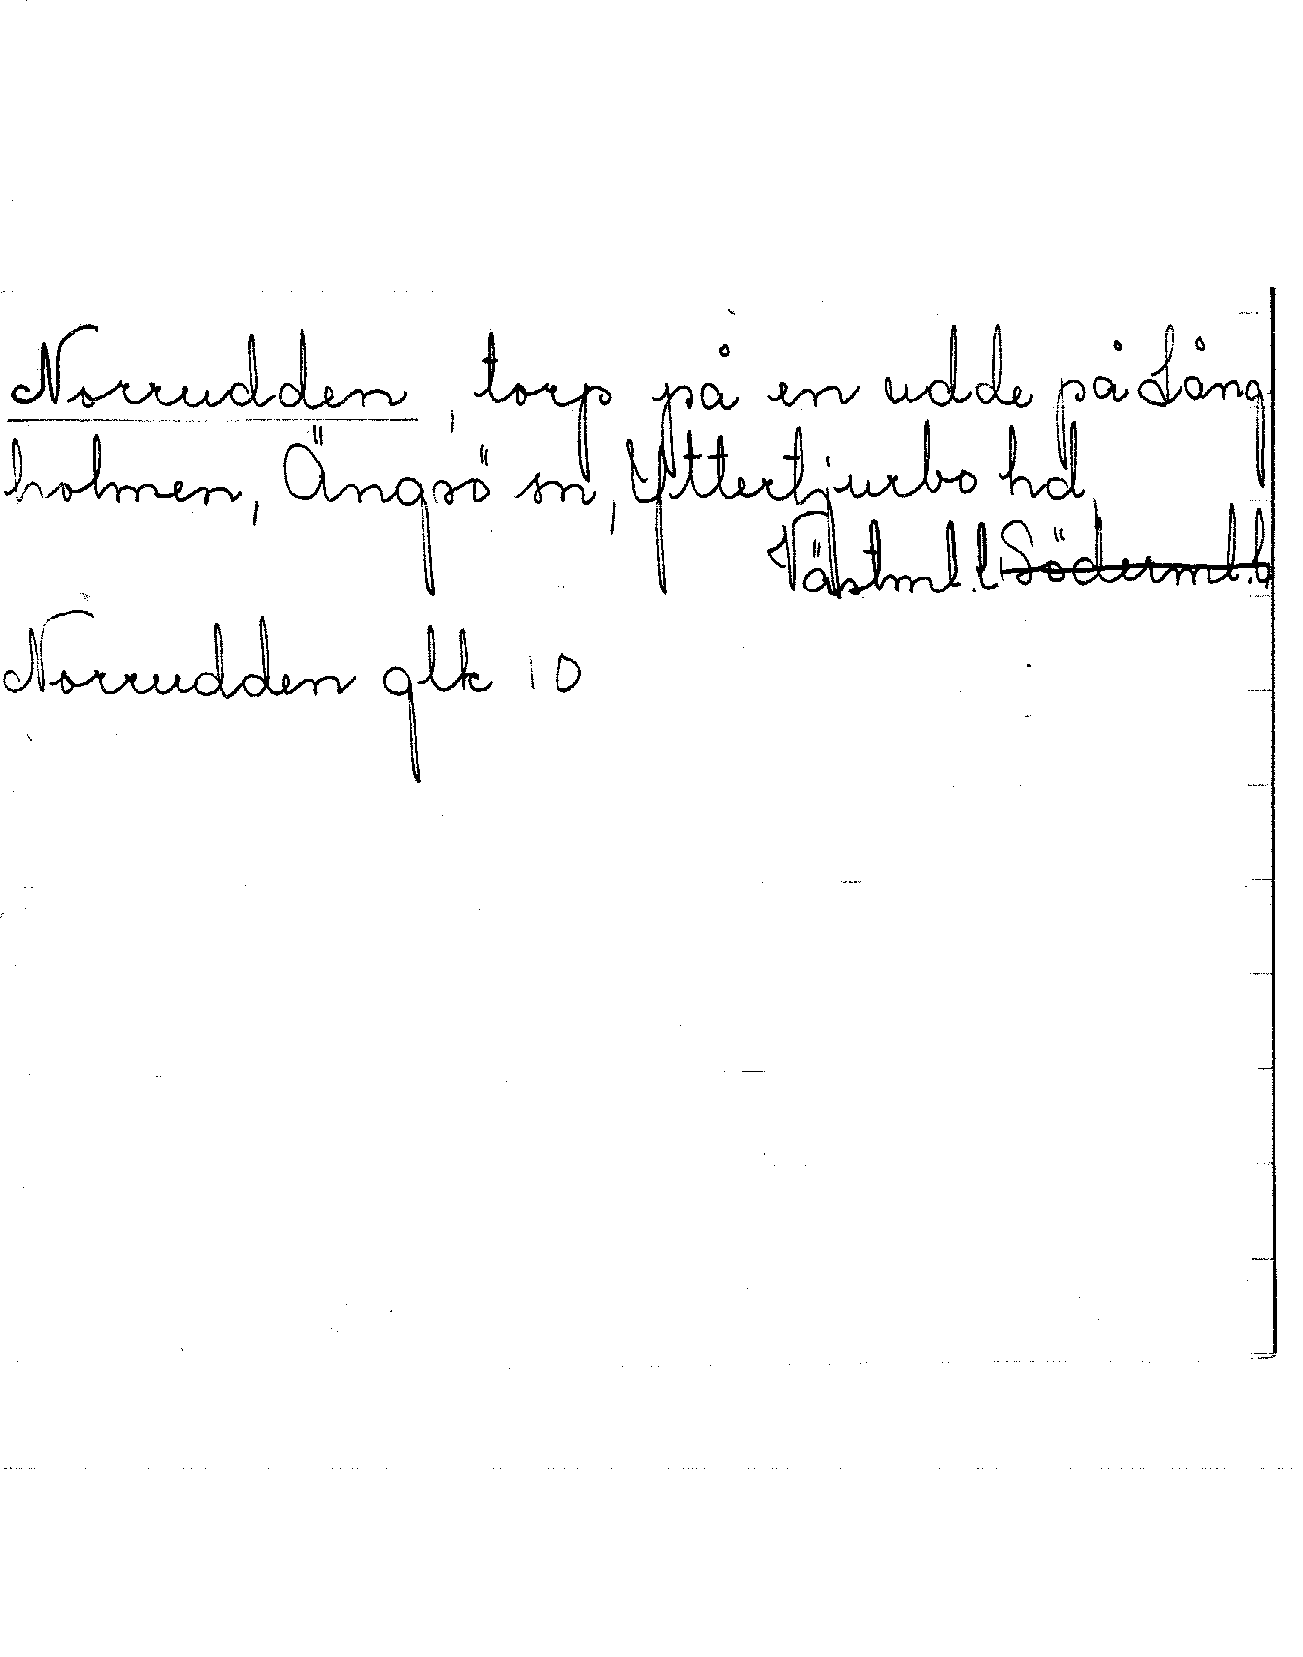 Norrudden, torp på en udde på Lång
holmen, Ängsö sn, Yttertjurbo hd,
Västml. l Söderml. l
Norrudden glk 10